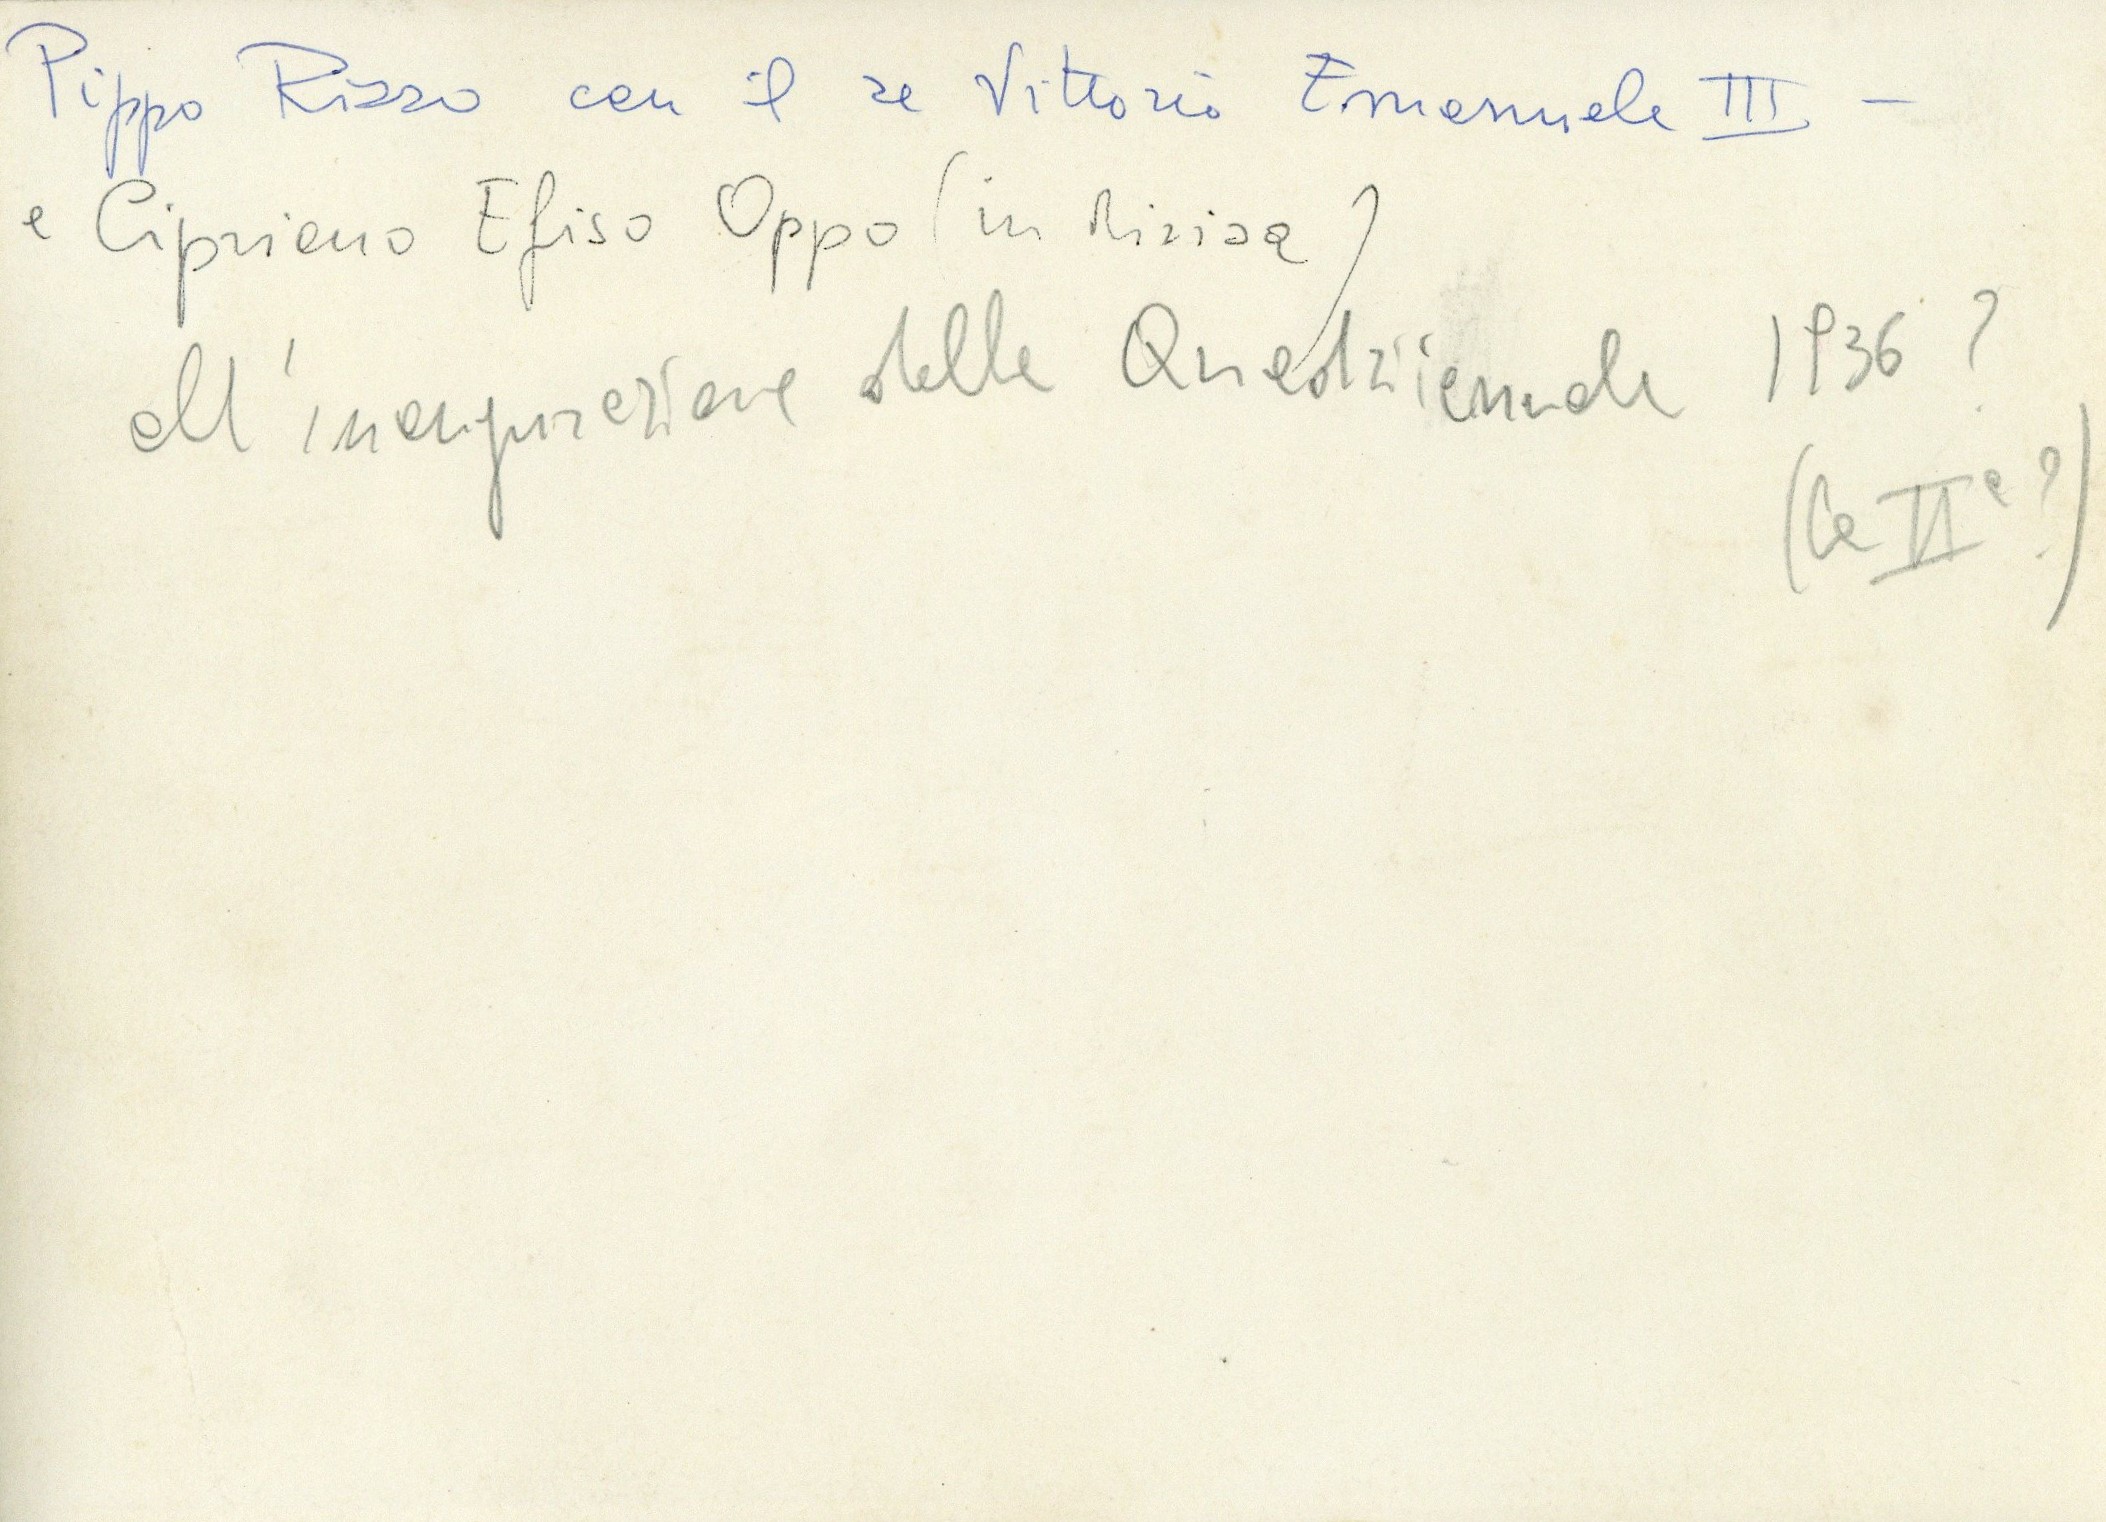 Pippo Rizzo con il re Vittorio Emanuele III –
e Cipriano Efisio Oppo (in divisa)
all'inaugurazione della Quadriennale 1936 ?
(la IIa ?)